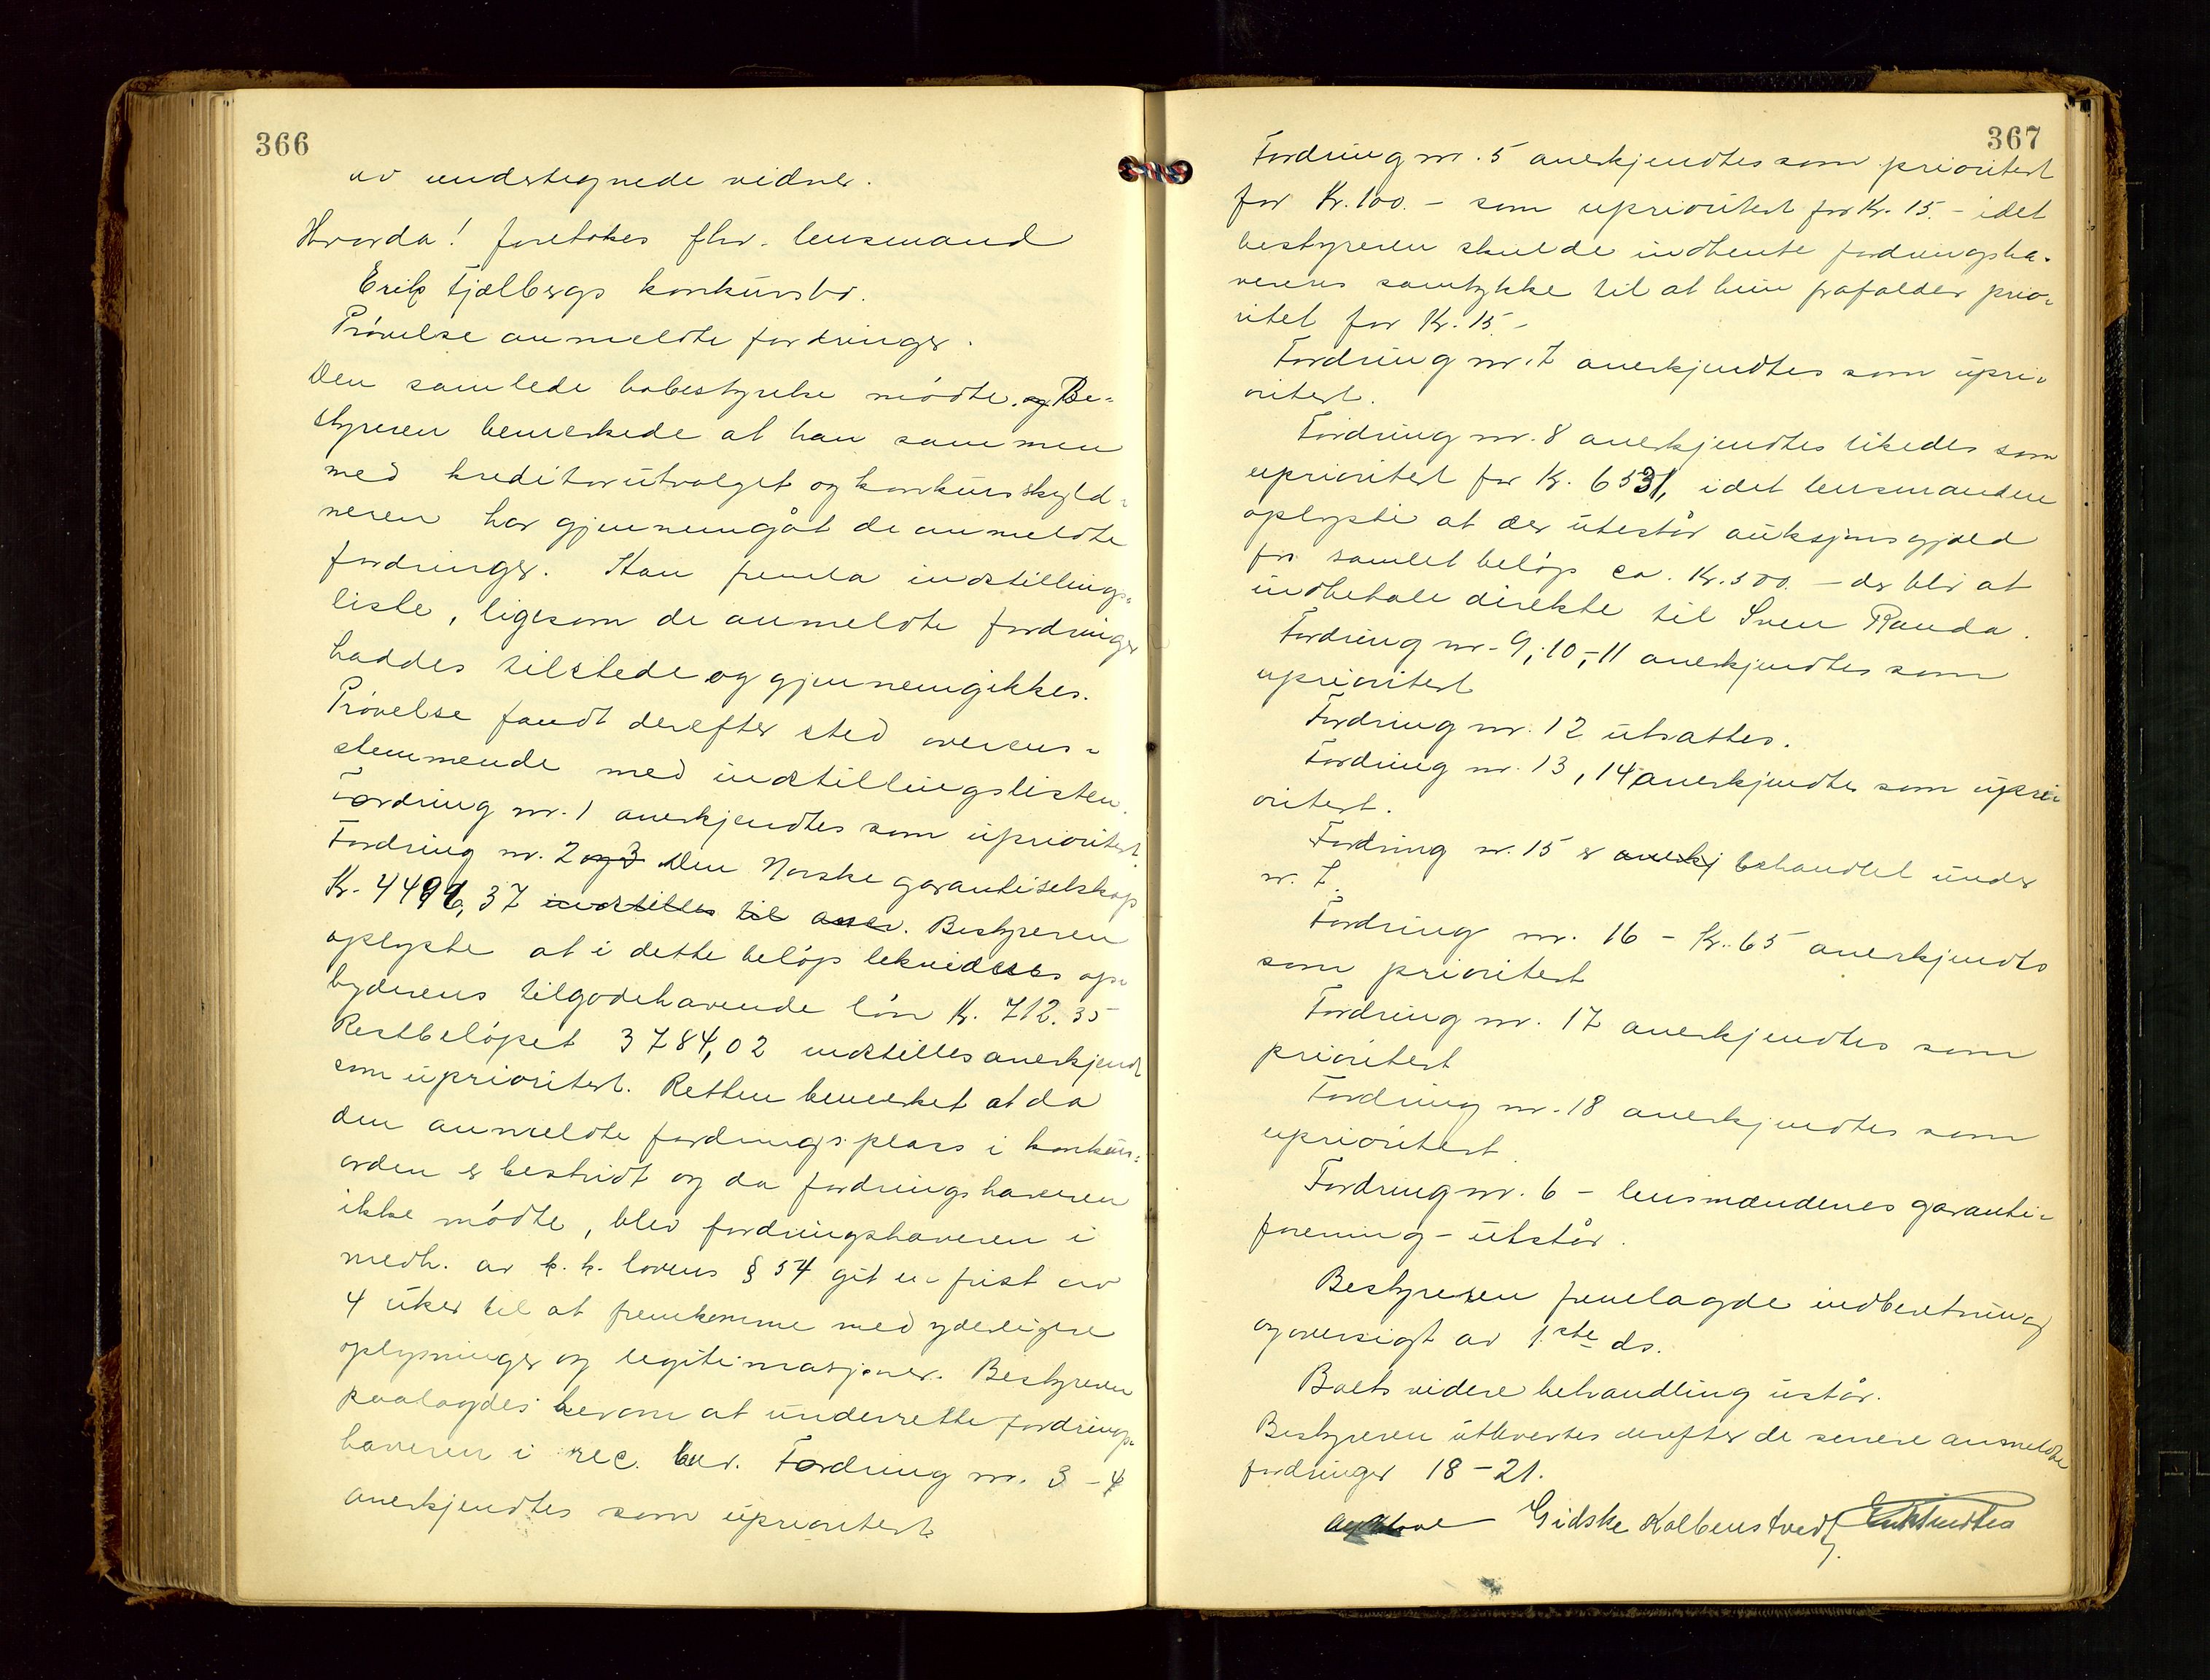 366
av undertegnede vidner.
Hvorda! foretokes fhv. lensmand
Erik Tjelbergs konkursbo.
Prövelse anmeldte fordringer.
Den samlede bobestyrelse mödte. og Be-
styreren bemerkede at han sammen
med kreditorutvalget og konkursskyld-
neren har gjennemgåt de anmeldte
fordringer. Han fremla indstillings-
liste, ligesom de anmeldte fordringer
haddes tilstede og gjennemgikkes.
Prövelse fandt derefter sted overens-
stemmende med indstillingslisten.
Fordring nr. 1 anerkjendtes som uprioritert
Fordring nr. 2 og 3 Den Norske garantiselskap
Kr. 4496,37 indstilles til aner. Bestyreren
oplyste at i dette belöp lekvideres op-
byderens tilgodehavende lön Kr. 712.35
Restbelöpet 3784,02 indstilles anerkjendt
som uprioritert. Retten bemerket at da
den anmeldte fordrings plass i konkurs-
orden er bestridt og da fordringshaveren
ikke mödte, blev fordringshaveren i
medh. av k. k. lovens § 54 git en frist av
4 uker til at fremkomme med yderligere
oplysninger og legitimasjoner. Bestyreren
paalagdes herom at underrette fordrings-
haveren i rec. brev. Fordring nr. 3 - 4
anerkjendtes som uprioritert
367
Fordring nr. 5 anerkjendtes som prioritert
for Kr. 100. - som uprioritert for Kr. 15. - idet
bestyreren skulde indhente fordringsha-
verens samtykke til at hun frafalder prio-
ritet for Kr. 15 -
Fordring nr. 7 anerkjendtes som upri-
oritert.
Fordring nr. 8 anerkjendtes likedes som
uprioritert for Kr. 6531, idet lensmanden
oplyste at der utestår auksjonsgjæld
for samlet belöp ca. Kr. 500. - der blir at
indbetale direkte til Sven Randa.
Fordring nr. 9, 10, - 11 anerkjendtes som
uprioritert
Fordring nr. 12 utsattes.
Fordring nr. 13, 14 anerkjendtes som upri-
oritert.
Fordring nr. 15 er anerkj behandlet under
nr. 7.
Fordring nr. 16 - Kr. 65 anerkjendts
som prioritert
Fordring nr. 17 anerkjendtes som
prioritert
Fordring nr. 18 anerkjendtes som
uprioritert.
Fordring nr. 6 - lensmændenes garanti-
forening - utstår.
Bestyreren fremlagde indberetning
og oversigt av 1ste ds.
Boets videre behandling ustår.
Bestyreren utlevertes derefter de senere anmeldte
fordringer 18 - 21.
Gidske Kolbenstvedt